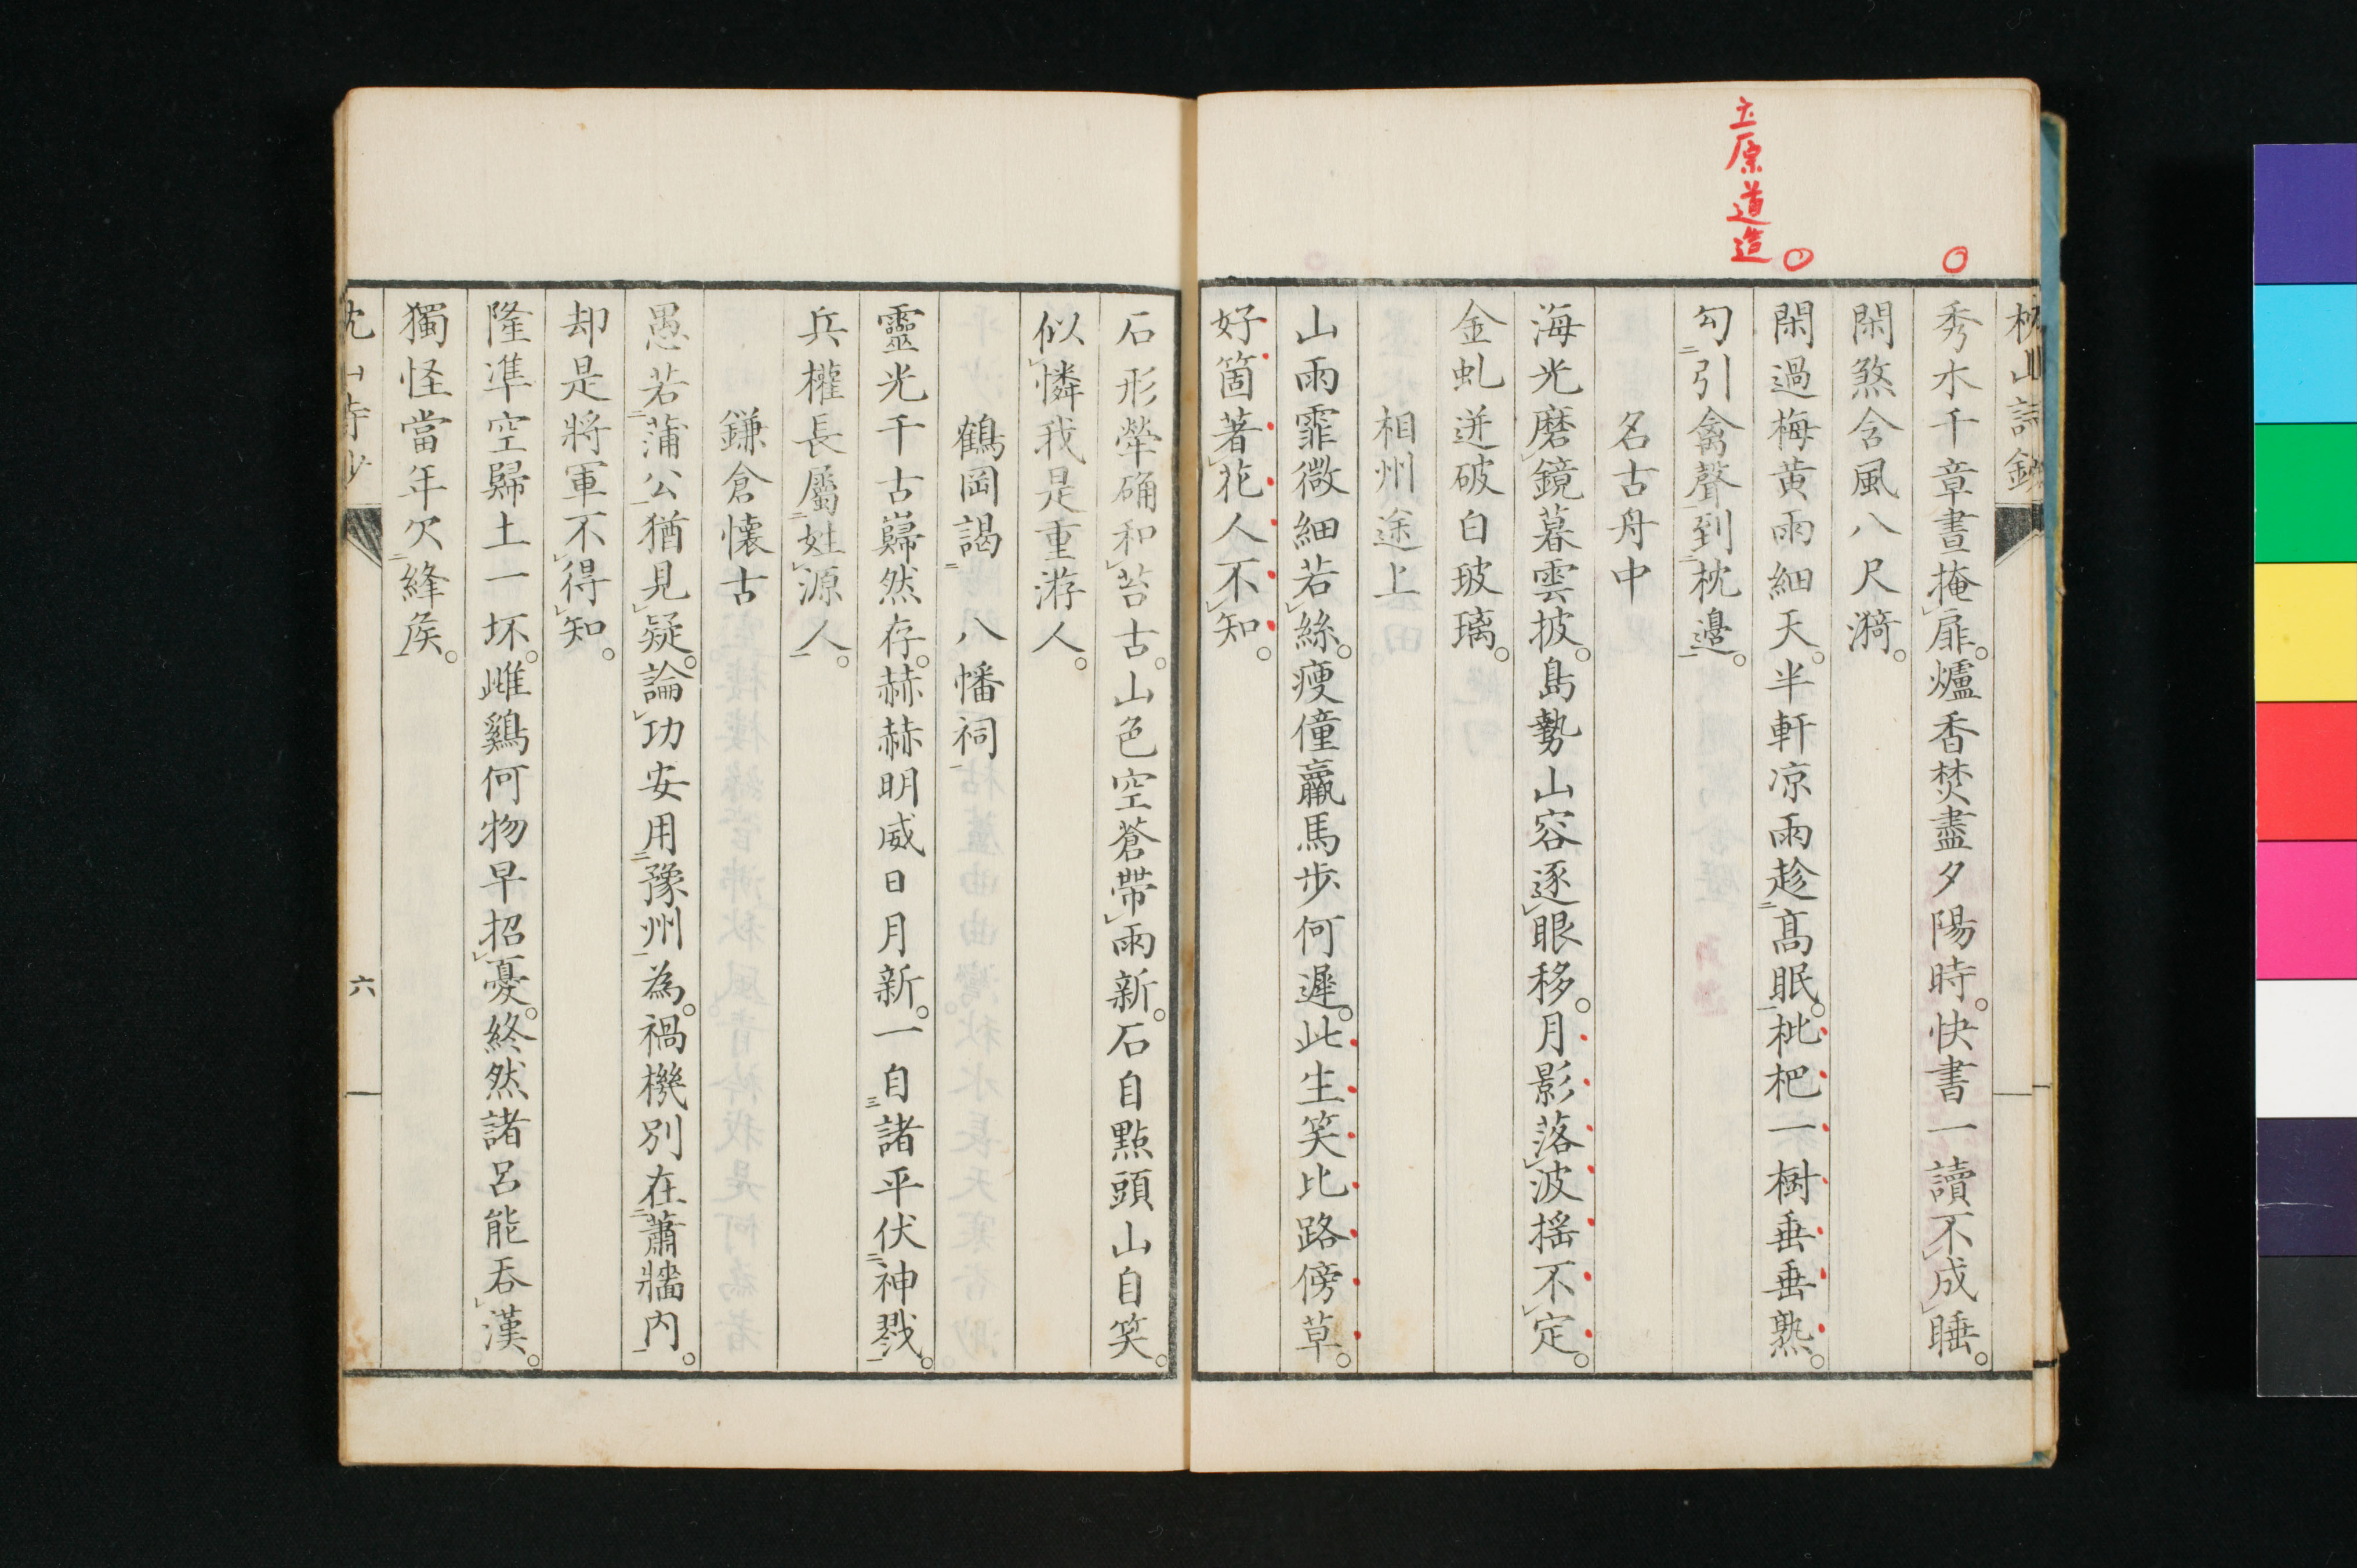 立原道造
枕山詩鈔
秀水千章晝掩扉。爐香焚盡夕陽時。快書一讀不成睡。
閑煞含風八尺漪。
閑過梅黄雨細天。半軒凉雨趁高眠。枇杷一樹垂垂熟。
勾引禽聲到枕邊。
名古舟中
海光磨鏡暮雲披。島勢山容逐眼移。月影落波搖不定。
金虬迸破白玻璃。
相州途上
山雨霏微細若絲。瘦僮羸馬步何遲。此生笑比路傍草。
好箇著花人不知。
石形犖确和苔古。山色空蒼帶雨新。石自點頭山自笑。
似憐我是重游人。
鶴岡謁八幡祠
靈光千古巋然存。赫赫明威日月新。一自諸平伏神戮。
兵權長屬姓源人。
鎌倉懷古
愚若蒲公猶見疑。論功安用豫州為。禍機別在蕭牆内。
却是將軍不得知。
隆準空歸土一坏。雌鷄何物早招憂。終然諸呂能吞漢。
獨怪當年欠絳侯。
六